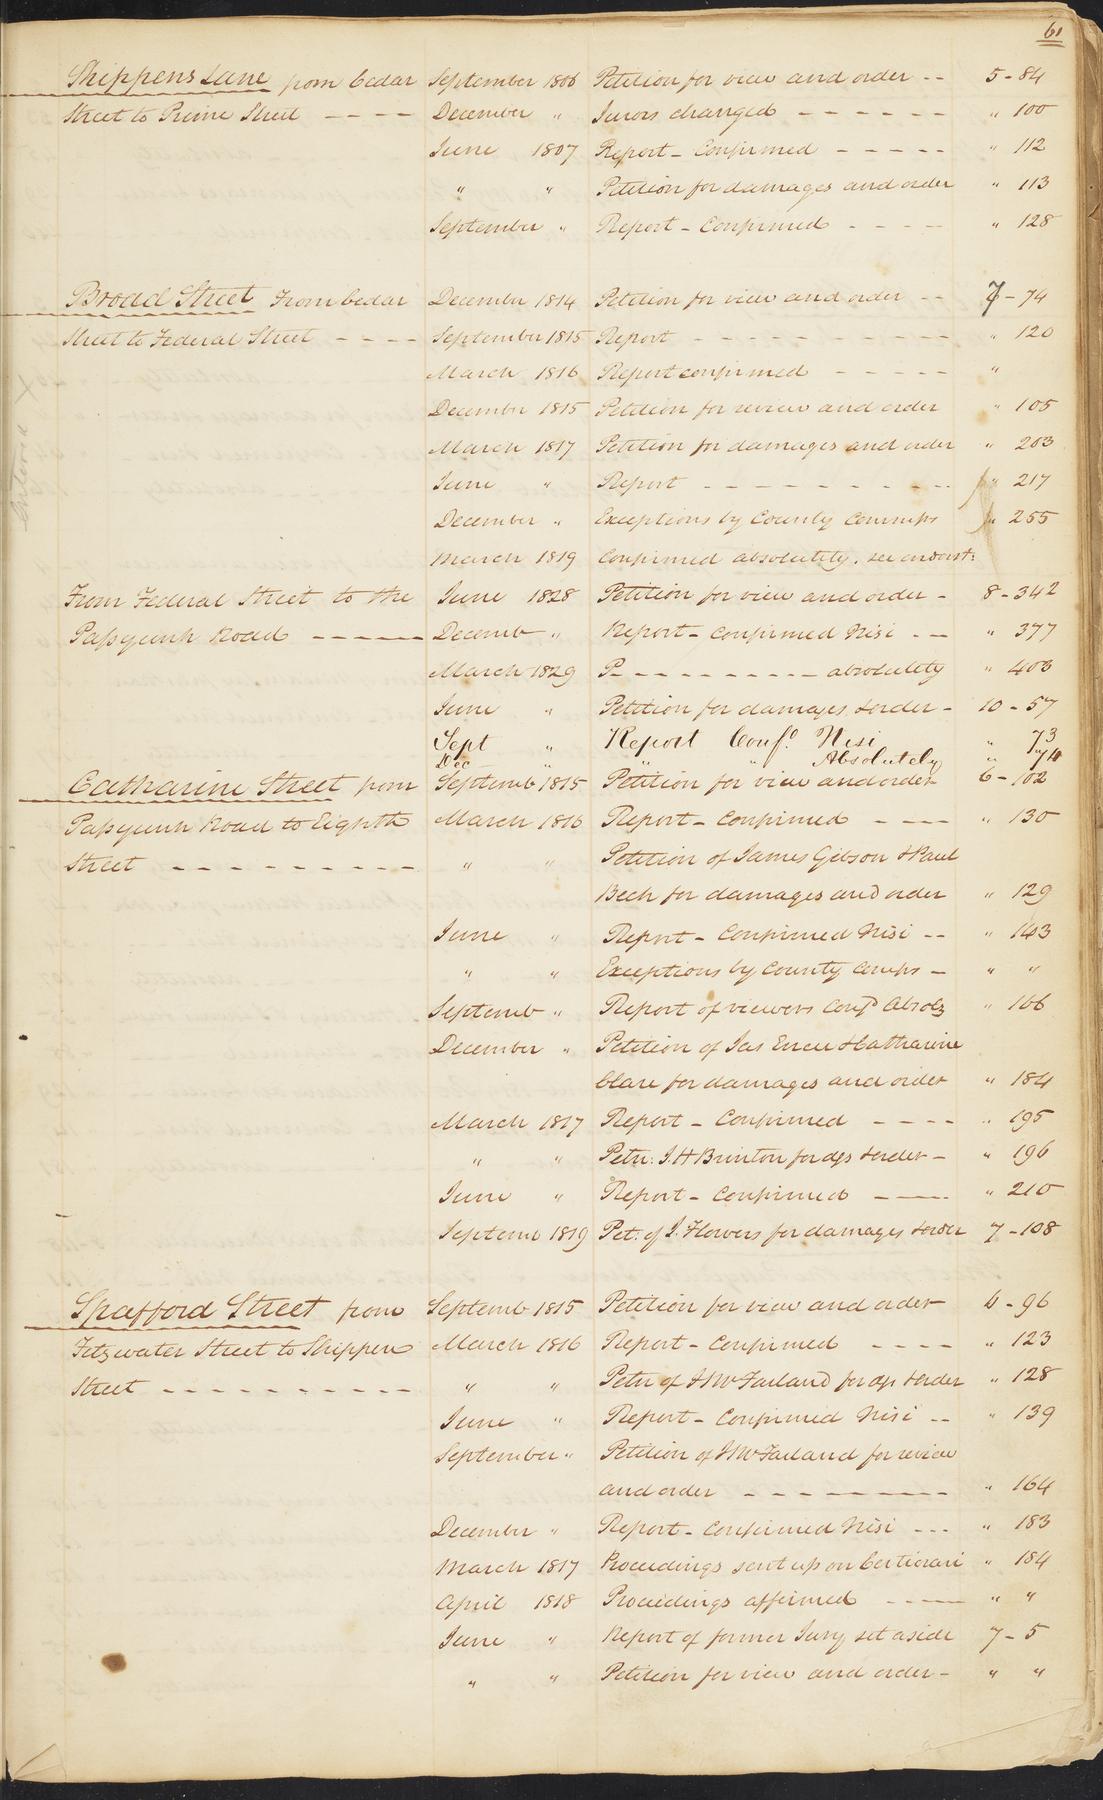 61
Shippens Lane from Cedar September 1806 Petition for view and order -- 5-84
Street to Prime Street ---- December " Jurors changed ------ " 100
June 1807 Report - Confirmed ----- " 112
" " Petition for damages and order " 113
September " Report - Confirmed ---- " 128
Broad Street From Cedar December 1814 Petition for view and order -- 7-74
Street to Federal Street ---- September 1815 Report --------- " 120
March 1816 Report confirmed ----- "
December 1815 Petition for review and order " 105
March 1817 Petition for damages and order " 203
June " Report --------- " 217
December " Exceptions by County Commrs " 255
March 1819 Confirmed absolutely. see endorst:
From Federal Street to the June 1828 Petition for view and order - 8-342
Passyunk Road ----- Decemb " Report - Confirmed Nisi --- " 377
March 1829 R--------- absolutely " 403
June " Petition for damages & order - 10-57
Sept " Report Conf.d Nisi " 73
Dec " " " Absolutely " 74
Catharine Street from Septemb 1815 Petition for view and order 6-102
Passyunk Road to Eighth March 1816 Report - Confirmed ---- " 130
Street --------- " " Petition of James Gibson & Paul
Beck for damages and order " 129
June " Report - Confirmed Nisi -- " 143
" " Exceptions by County Comrs - " "
Septemb " Report of viewers Conf.d Absoly " 166
December " Petition of Jas & Catharine
Clare for damages and order " 184
March 1817 Report - Confirmed ---- " 195
" " Petn: J. H Brinton for dgs & order - " 196
June " Report - Confirmed --- " 210
Septem 1819 Pet: of J. Flowers for damages & order 7-108
Spafford Street from Septemb 1815 Petition for view and order 6-96
Fitzwater Street to Shippen March 1816 Report - Confirmed ---- " 123
Street ---------- " " Petn of J McFarland for dgs & order " 128
June " Report - Confirmed Nisi -- " 139
September " Petition of J McFarland for review
and order --------- " 164
December " Report - Confirmed Nisi --- " 183
March 1817 Proceedings sent up on Certiorari " 184
April 1818 Proceedings affirmed ---- " "
June " Report of former Jury set aside 7-5
" " Petition for view and order - " "